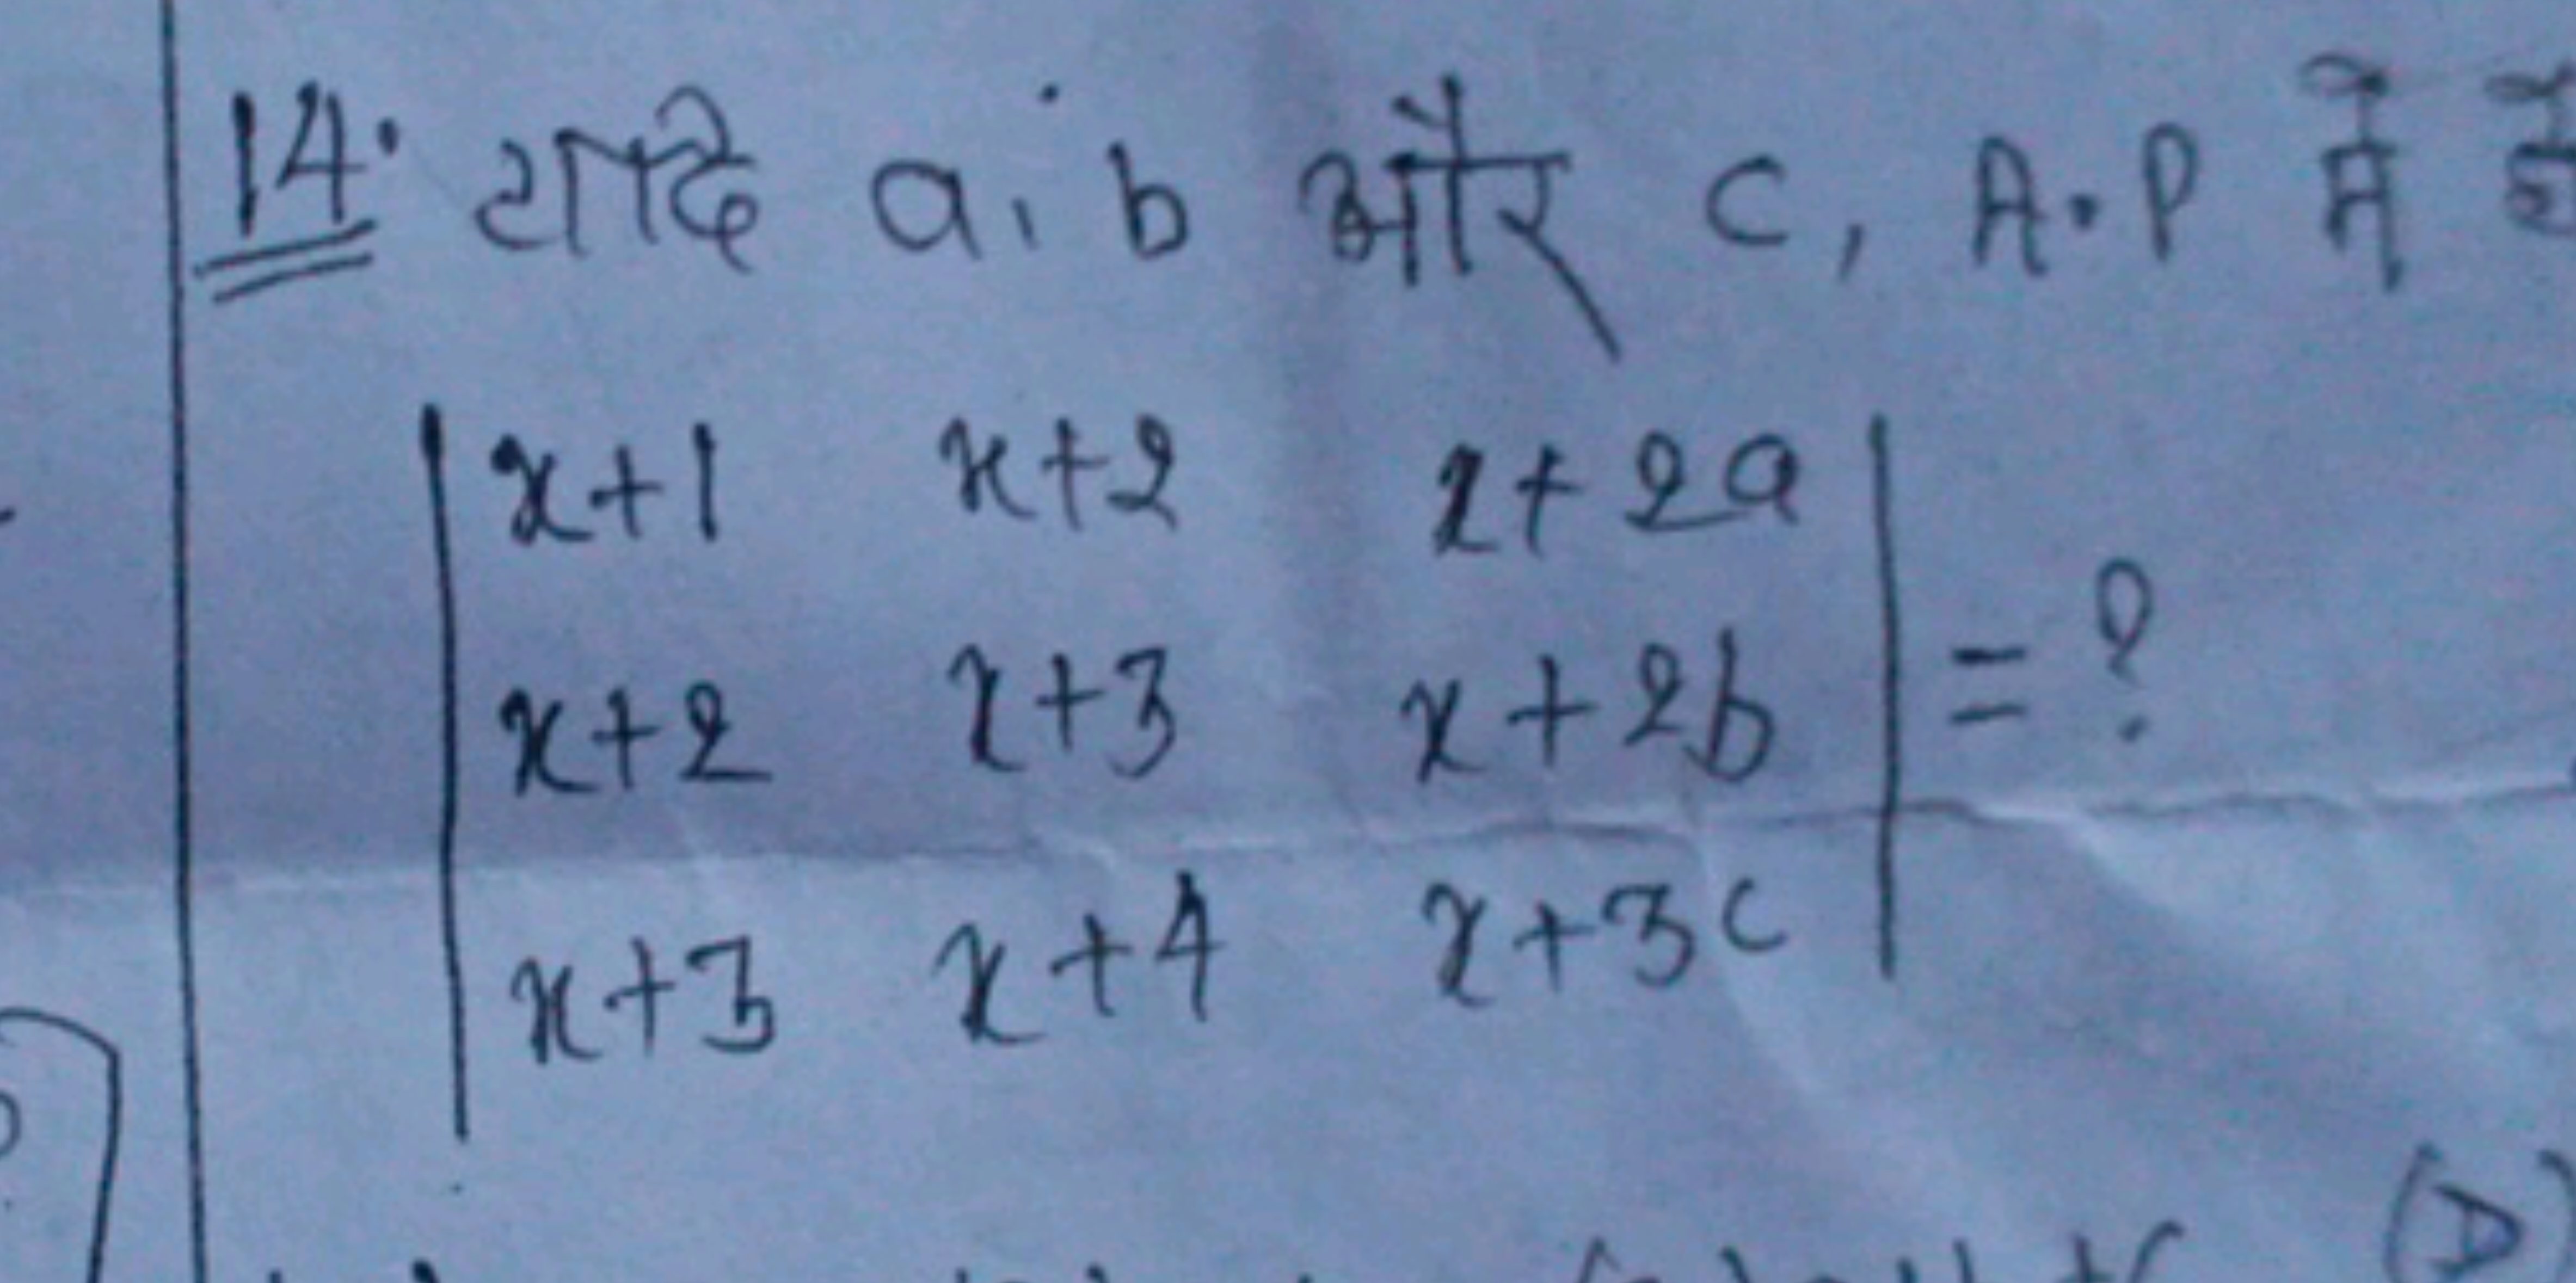 14. यदि a, b और c, A.P में हैं
x+1 x+2 x+2a
x+2 x+3 x+2b = ?
x+3 x+4 x+3c
(D)